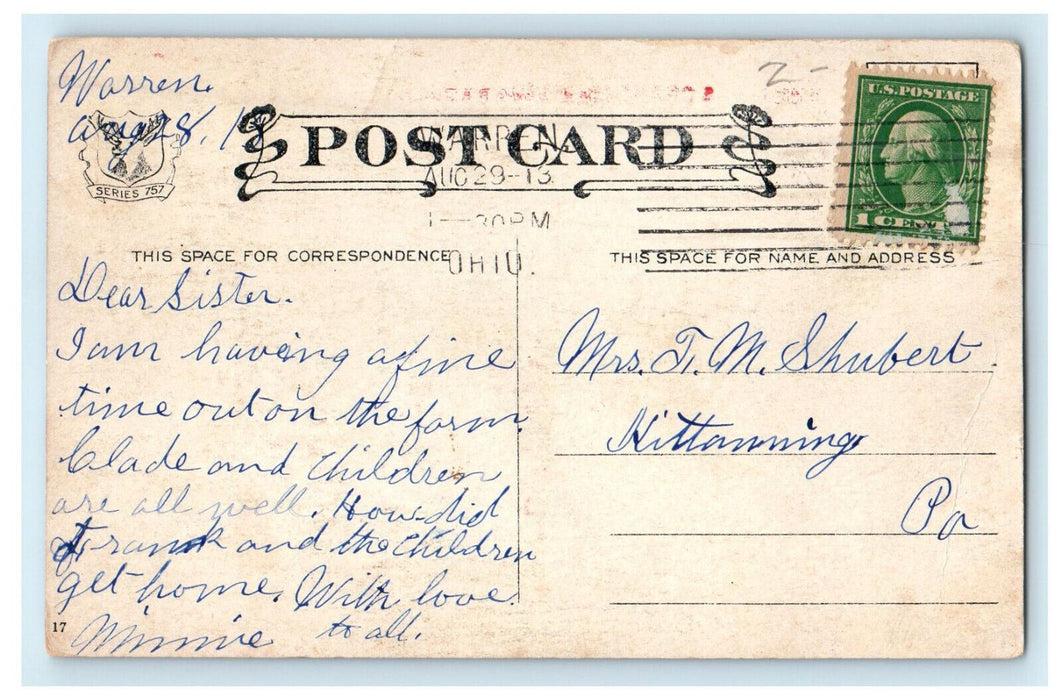 Warren.
2-
U.S. POSTAGE
1 CENT
POST CARD
WARREN,
AUG 29-13
1-30PM
OHIO.
SERIES 757
THIS SPACE FOR CORRESPONDENCE
THIS SPACE FOR NAME AND ADDRESS
Dear Sister.
I am having a fine
time out on the farm.
Clade and children
are all well. How did
Frank and the children
get home. With love
to all.
Minnie
17
Mrs. T. M. Shubert
Kittanning
Pa